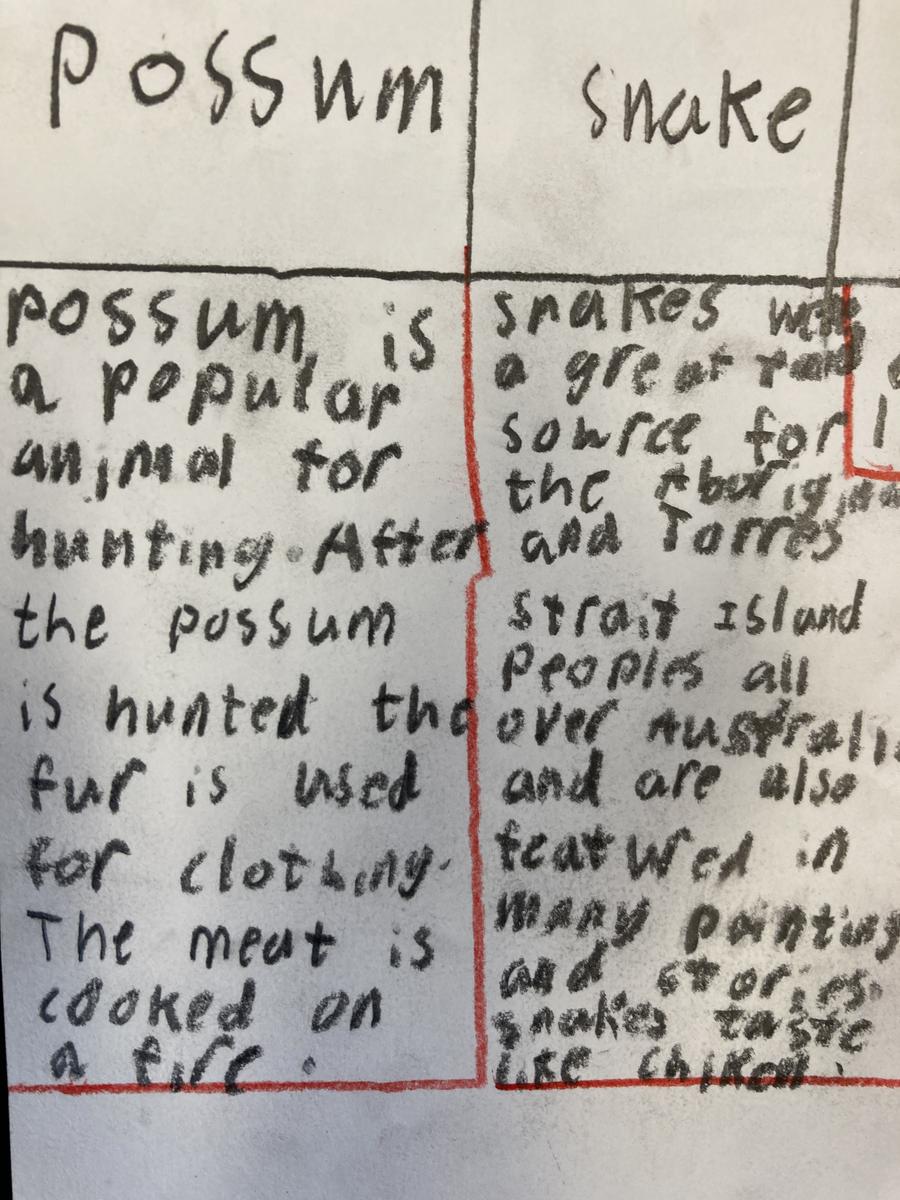 Possum
possum is
a popular
animal for
hunting. After
the possum
is hunted the
fur is used
for clothing.
The meat is
cooked on
a fire.
Snake
snakes were
a great food
source for
the
and Torres
Strait Island
Peoples all
over
and are also
featured in
many
and stories.
snakes taste
like chiken.